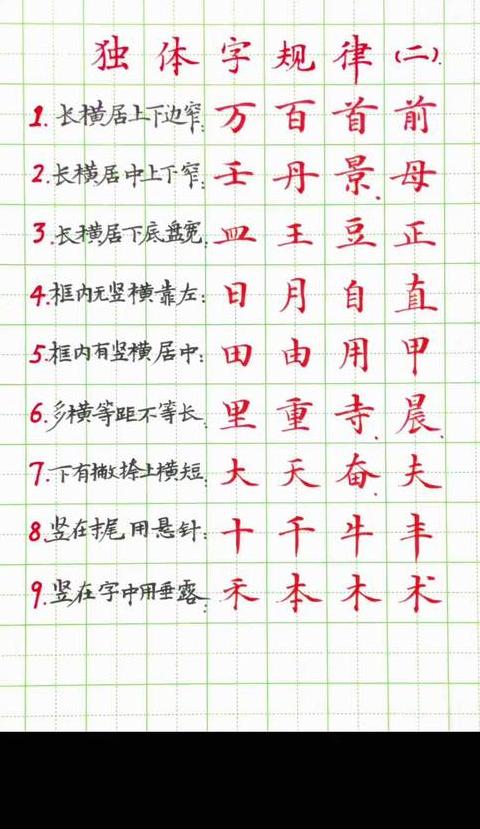 独体字规律(二).
1. 长横居上下边窄: 万 百 首 前
2. 长横居中上下窄: 壬 丹 景 母
3. 长横居下底盘宽: 皿 王 豆 正
4. 框内无竖横靠左: 日 月 自 直
5. 框内有竖横居中: 田 由 用 甲
6. 多横等距不等长: 里 重 寺 晨
7. 下有撇捺上横短: 大 天 奋 夫
8. 竖在字尾用悬针: 十 千 牛 丰
9. 竖在字中用垂露: 禾 本 木 术